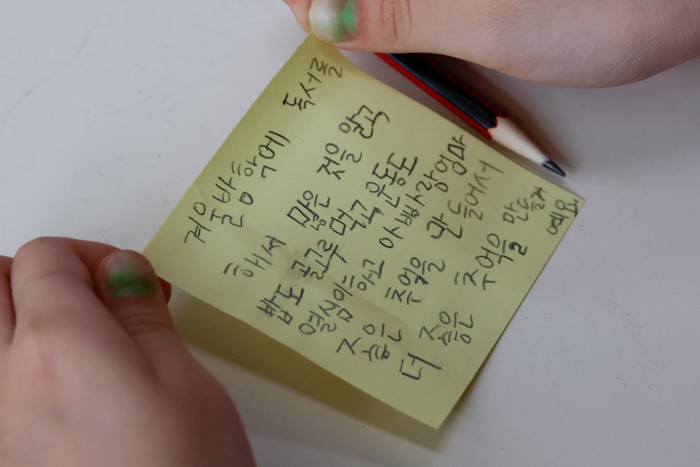 겨울방학에 독서를
해서 많은 것을 알고
밥도 골고루 먹고 운동도
열심이하고 아빠사랑엄마
좋은 추억을 만들어서
더 좋은 추억을 만들거
예요